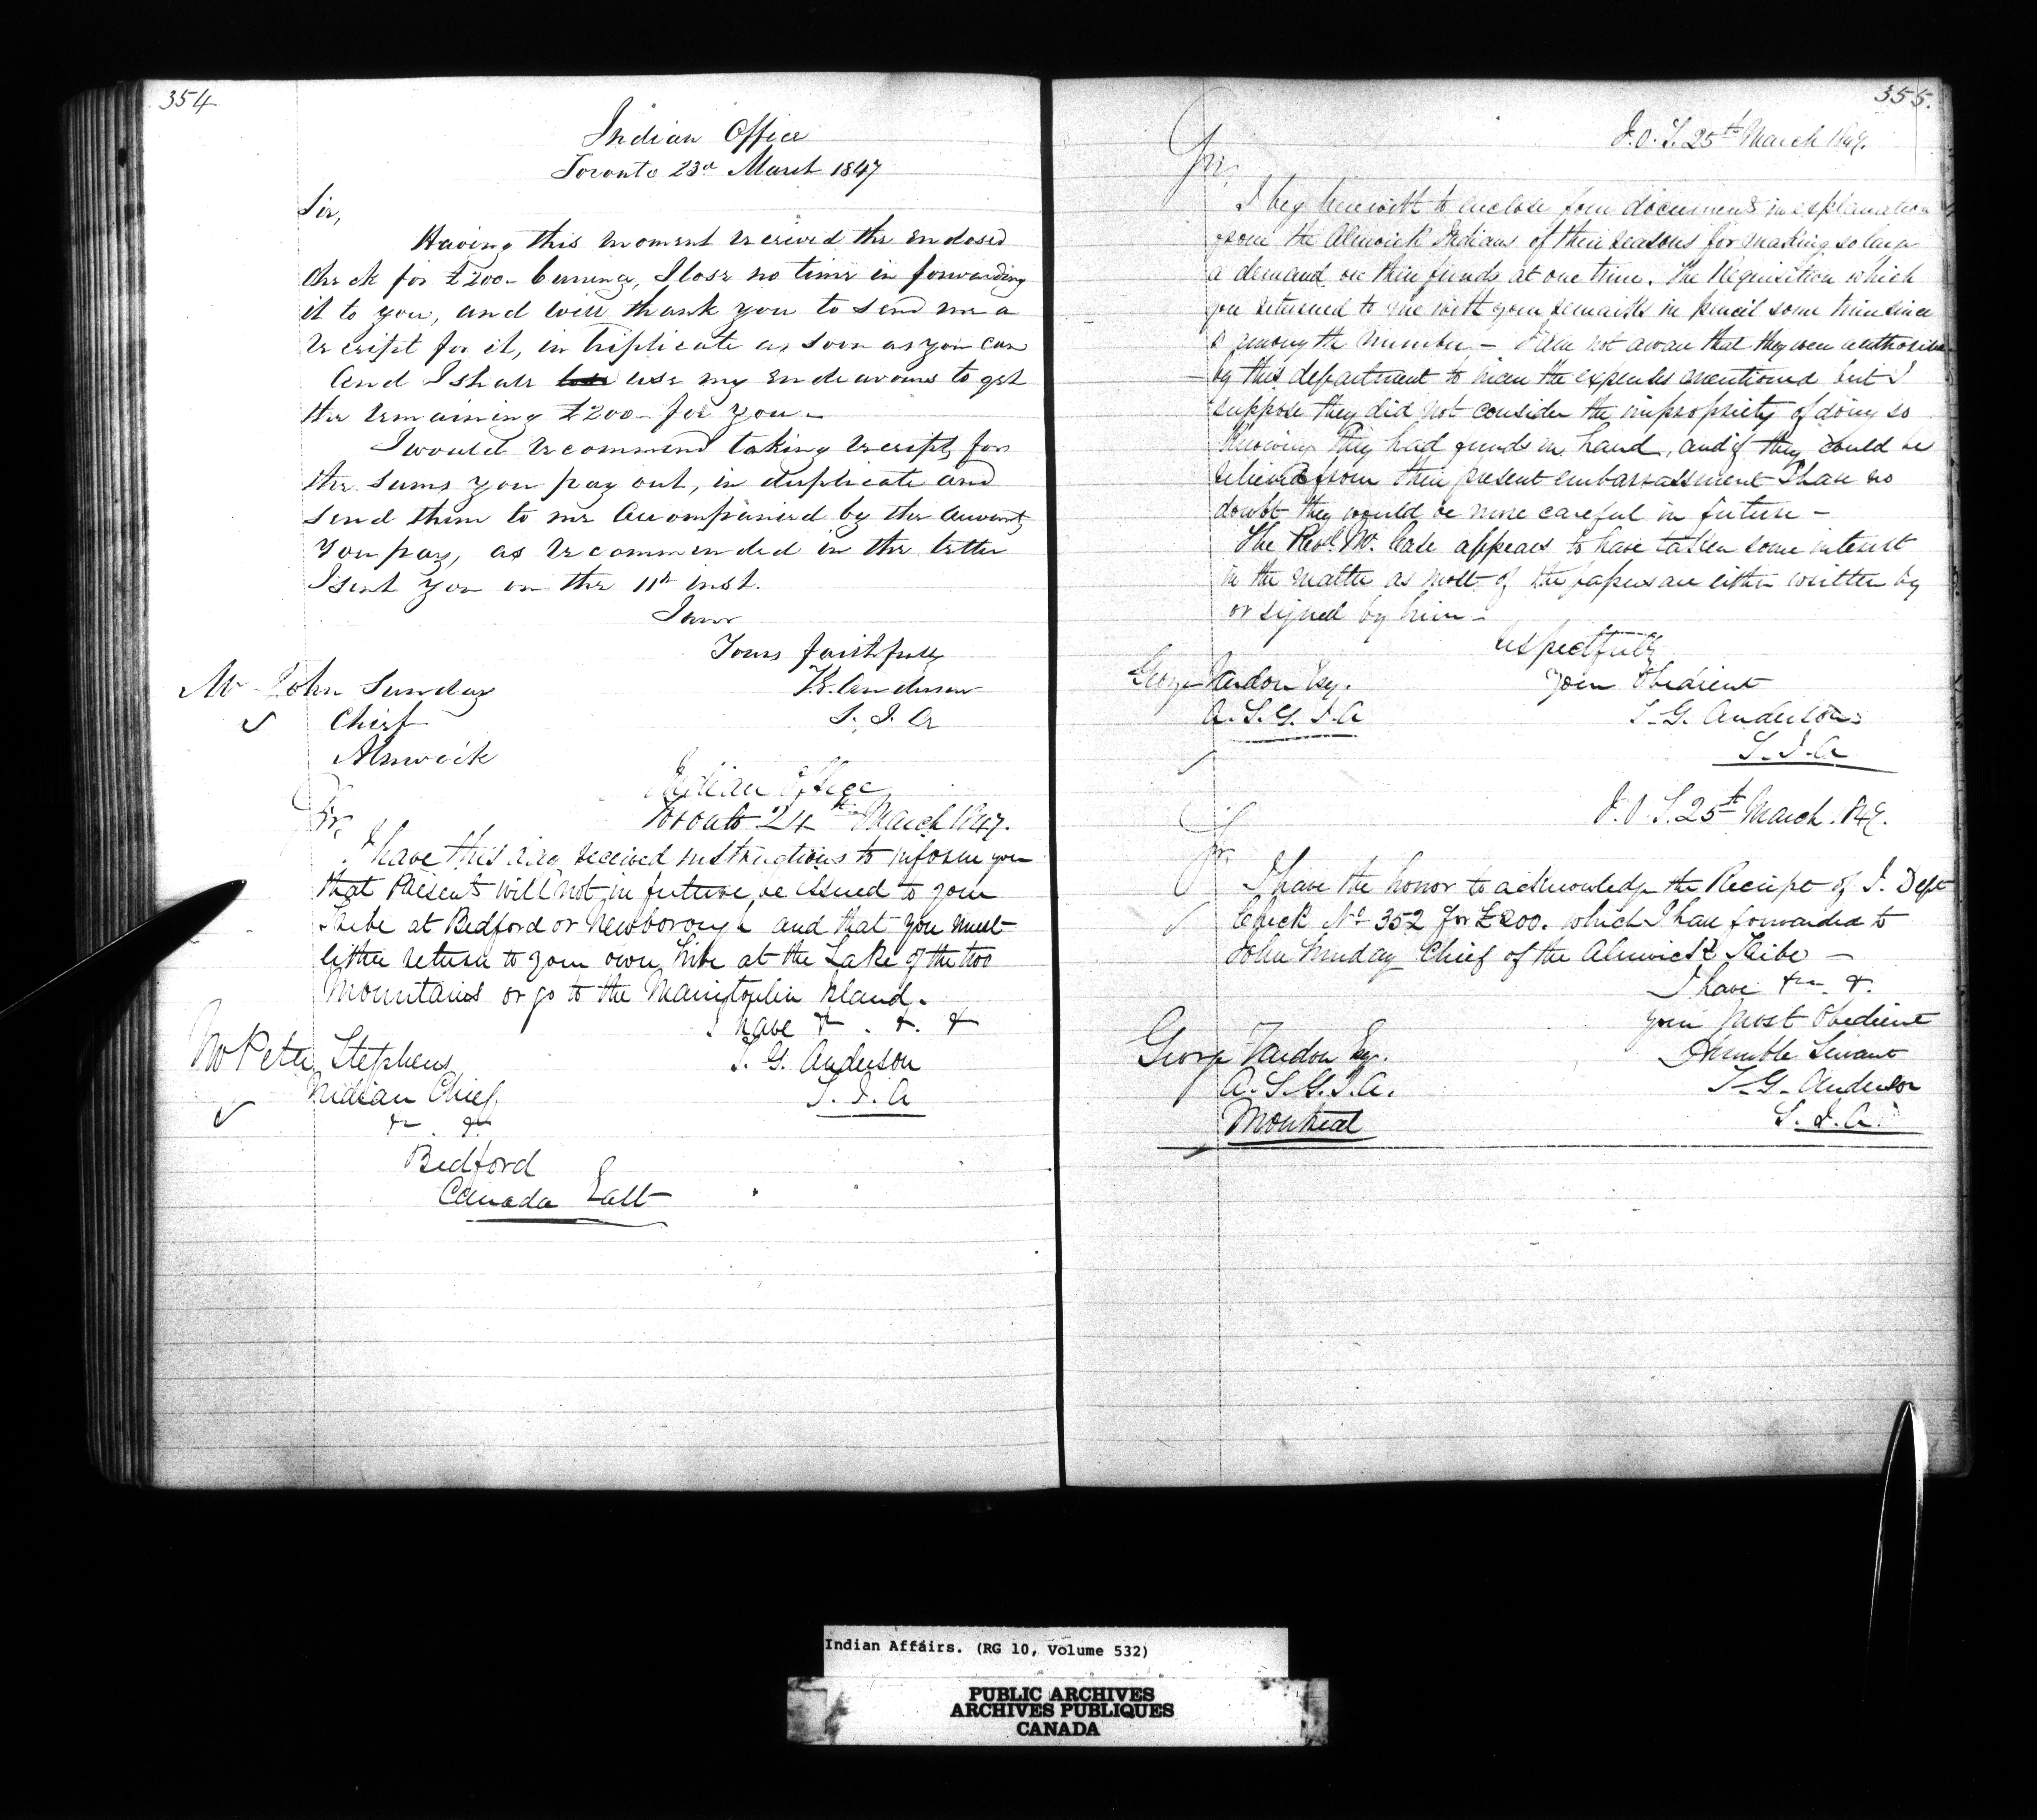 354
Indian Office
Toronto 23d March 1847
Sir,
Having this moment received the enclosed
check for £200- Currency, I lose no time in forwarding
it to you, and will thank you to send me a
receipt for it, in triplicate as soon as you can
And I shall use my endeavours to get
the remaining £200- for you -
I would recommend taking receipts for
the sums you pay out, in duplicate and
send them to me accompanied by the accounts
you pay, as recommended in the letter
I sent you on the 11th inst.
I am
Yours faithfully
T.G. Anderson
S. I. A
Mr John Sunday
Chief
Alnwick
Indian Office
Toronto 24th March 1847.
Sir,
I have this day received instructions to inform you
that Presents will not, in future, be issued to your
Tribe at Bedford or Newborough and that you must
either return to your own tribe at the Lake of the two
Mountains or go to the Manitoulin Island.
I have & . &. &
T. G. Anderson
S. I. A
Mr Peter Stephens
Indian Chief
& . &
Bedford
Canada East
355.
I.O.T. 25th March 1847.
Sir,
I beg herewith to enclose four documents in explanation
from the Alnwick Indians of their reasons for making so large
a demand on their funds at one time. The Requisition which
you returned to me with your remarks in pencil some time since
is among the number. - I am not aware that they were authorised
by this department to incur the expenses mentioned but I
suppose they did not consider the impropriety of doing so
knowing they had funds in hand, and if they could be
relieved from their present embarrassment I have no
doubt they would be more careful in future -
The Revd. Mr. Case appears to have taken some interest
in the matter as most of the papers are either written by
or signed by him -
Respectfully
Your Obedient
T. G. Anderson
S. I. A
George Vardon Esq.
A. S. G. I. A
I. O. T. 25th March. 1847.
Sir,
I have the honor to acknowledge the Receipt of I. Dept
Check No 352 for £200. which I have forwarded to
John Sunday Chief of the Alnwick Tribe -
I have &c. &.
your most Obedient
Humble Servant
T. G. Anderson
S. I. A.
George Vardon Esq.
A. S. G. I. A.
Montreal
Indian Affairs. (RG 10, Volume 532)
PUBLIC ARCHIVES
ARCHIVES PUBLIQUES
CANADA